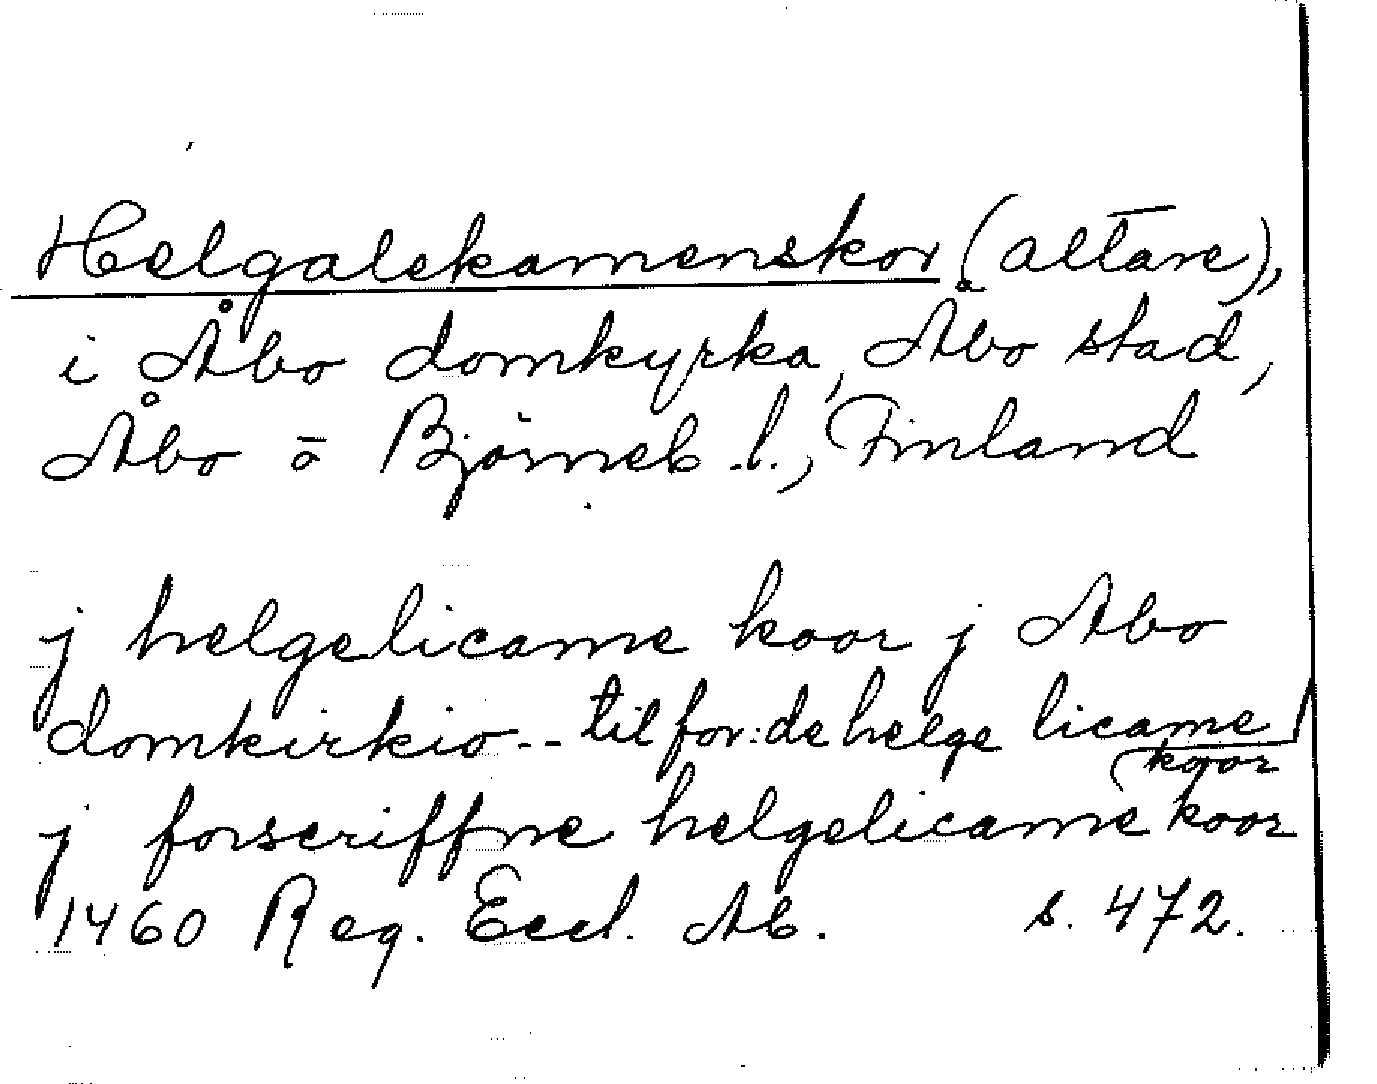 Helgalekamenskor (altare),
i Åbo domkyrka, Åbo stad,
Åbo o Björneb. l., Finland
j helgelicame koor j Abo
domkirkio -- til for:de helge licame
koor
j forscriffne helgelicame koor
1460 Reg. Eccl. Ab. s. 472.